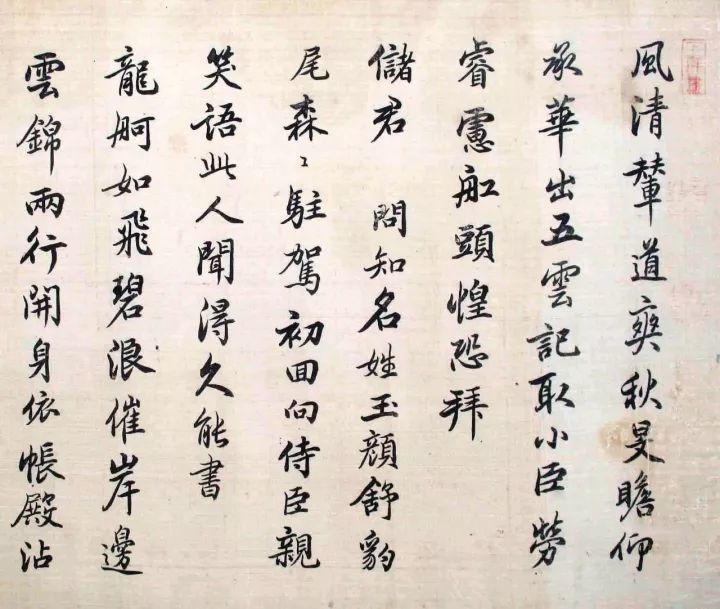 風清輦道爽秋旻瞻仰
承華出五雲記取小臣勞
睿慮舡頭惶恐拜
儲君 問知名姓玉顏舒豹
尾森〻駐駕初回向侍臣親
笑語此人聞得久能書
龍舸如飛碧浪催岸邊
雲錦兩行開身依帳殿沾